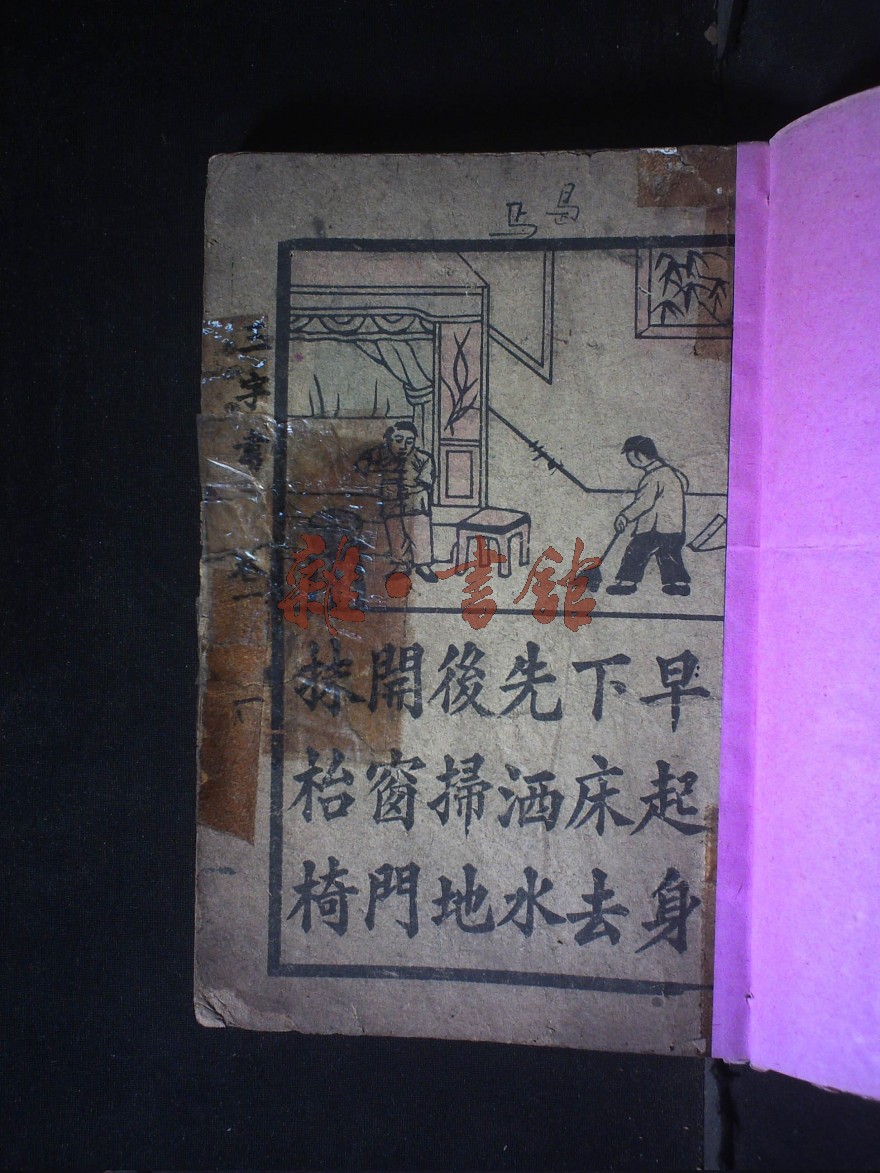 雜·書館
早起身
下床去
先洒水
後掃地
開窗門
抹枱椅
三字書 卷一